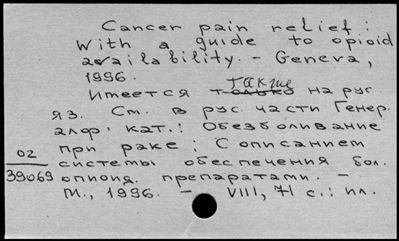 Cancer pain relief:
With a guide to opioid
availability. - Geneva,
1996.
также
Имеется только на рус
яз. См. в рус. части Генер.
алф. кат.: Обезболивание
при раке: С описанием
02
системы обеспечения бол.
39069
опиоид. препаратами. -
М., 1996. - VIII, 71 с.: ил.